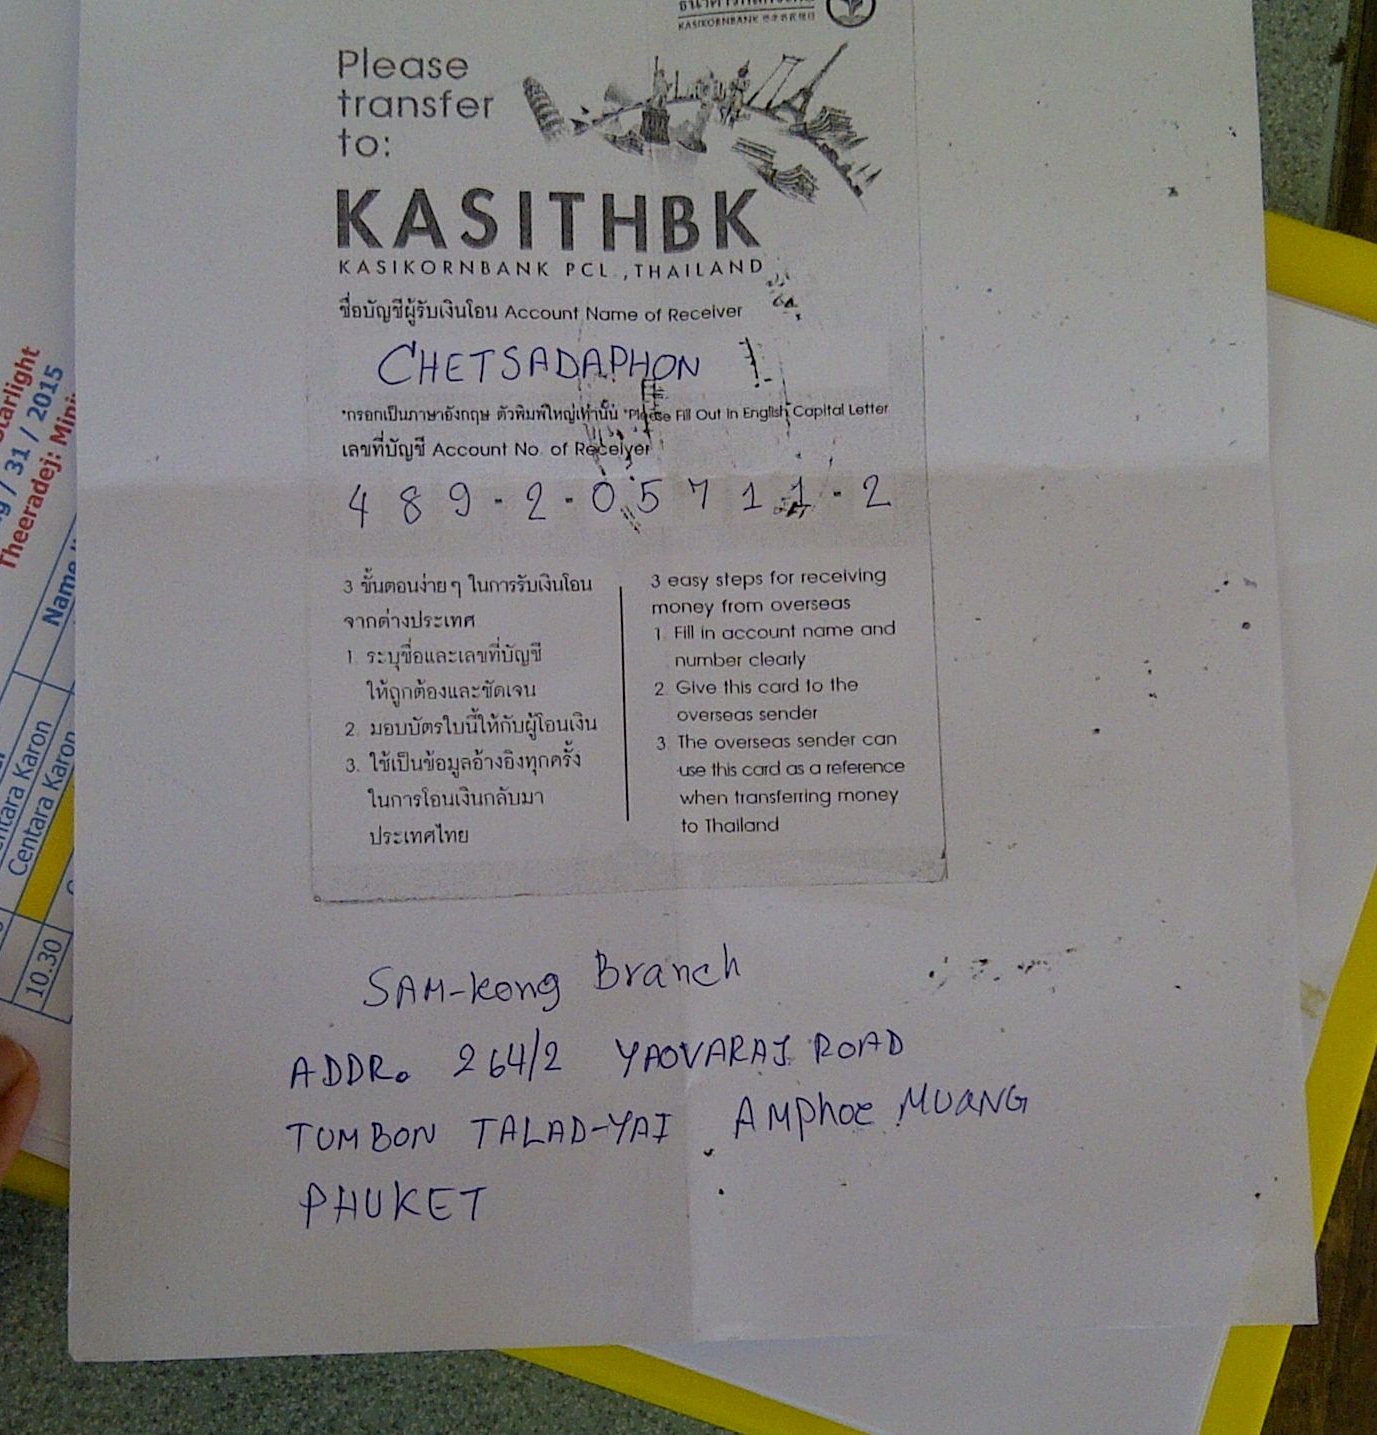 KASIKORNBANK
Please
transfer
to:
KASITHBK
KASIKORNBANK PCL., THAILAND
ชื่อบัญชีผู้รับเงินโอน Account Name of Receiver
CHETSADAPHON
*กรอกเป็นภาษาอังกฤษ ตัวพิมพ์ใหญ่เท่านั้น *Please Fill Out in English Capital Letter
เลขที่บัญชี Account No. of Receiver
489-2-05711-2
3 ขั้นตอนง่ายๆ ในการรับเงินโอน
จากต่างประเทศ
1. ระบุชื่อและเลขที่บัญชี
ให้ถูกต้องและชัดเจน
2. มอบบัตรใบนี้ให้กับผู้โอนเงิน
3. ใช้เป็นข้อมูลอ้างอิงทุกครั้ง
ในการโอนเงินกลับมา
ประเทศไทย
3 easy steps for receiving
money from overseas
1. Fill in account name and
number clearly
2. Give this card to the
overseas sender
3. The overseas sender can
use this card as a reference
when transferring money
to Thailand
SAM-kong Branch
ADDR. 264/2 YAOVARAJ ROAD
TUMBON TALAD-YAI AMPhoe MUANG
PHUKET
Starlight
/ 31 / 2015
Theeradej:
Name
Centara Karon
Karon
10.30